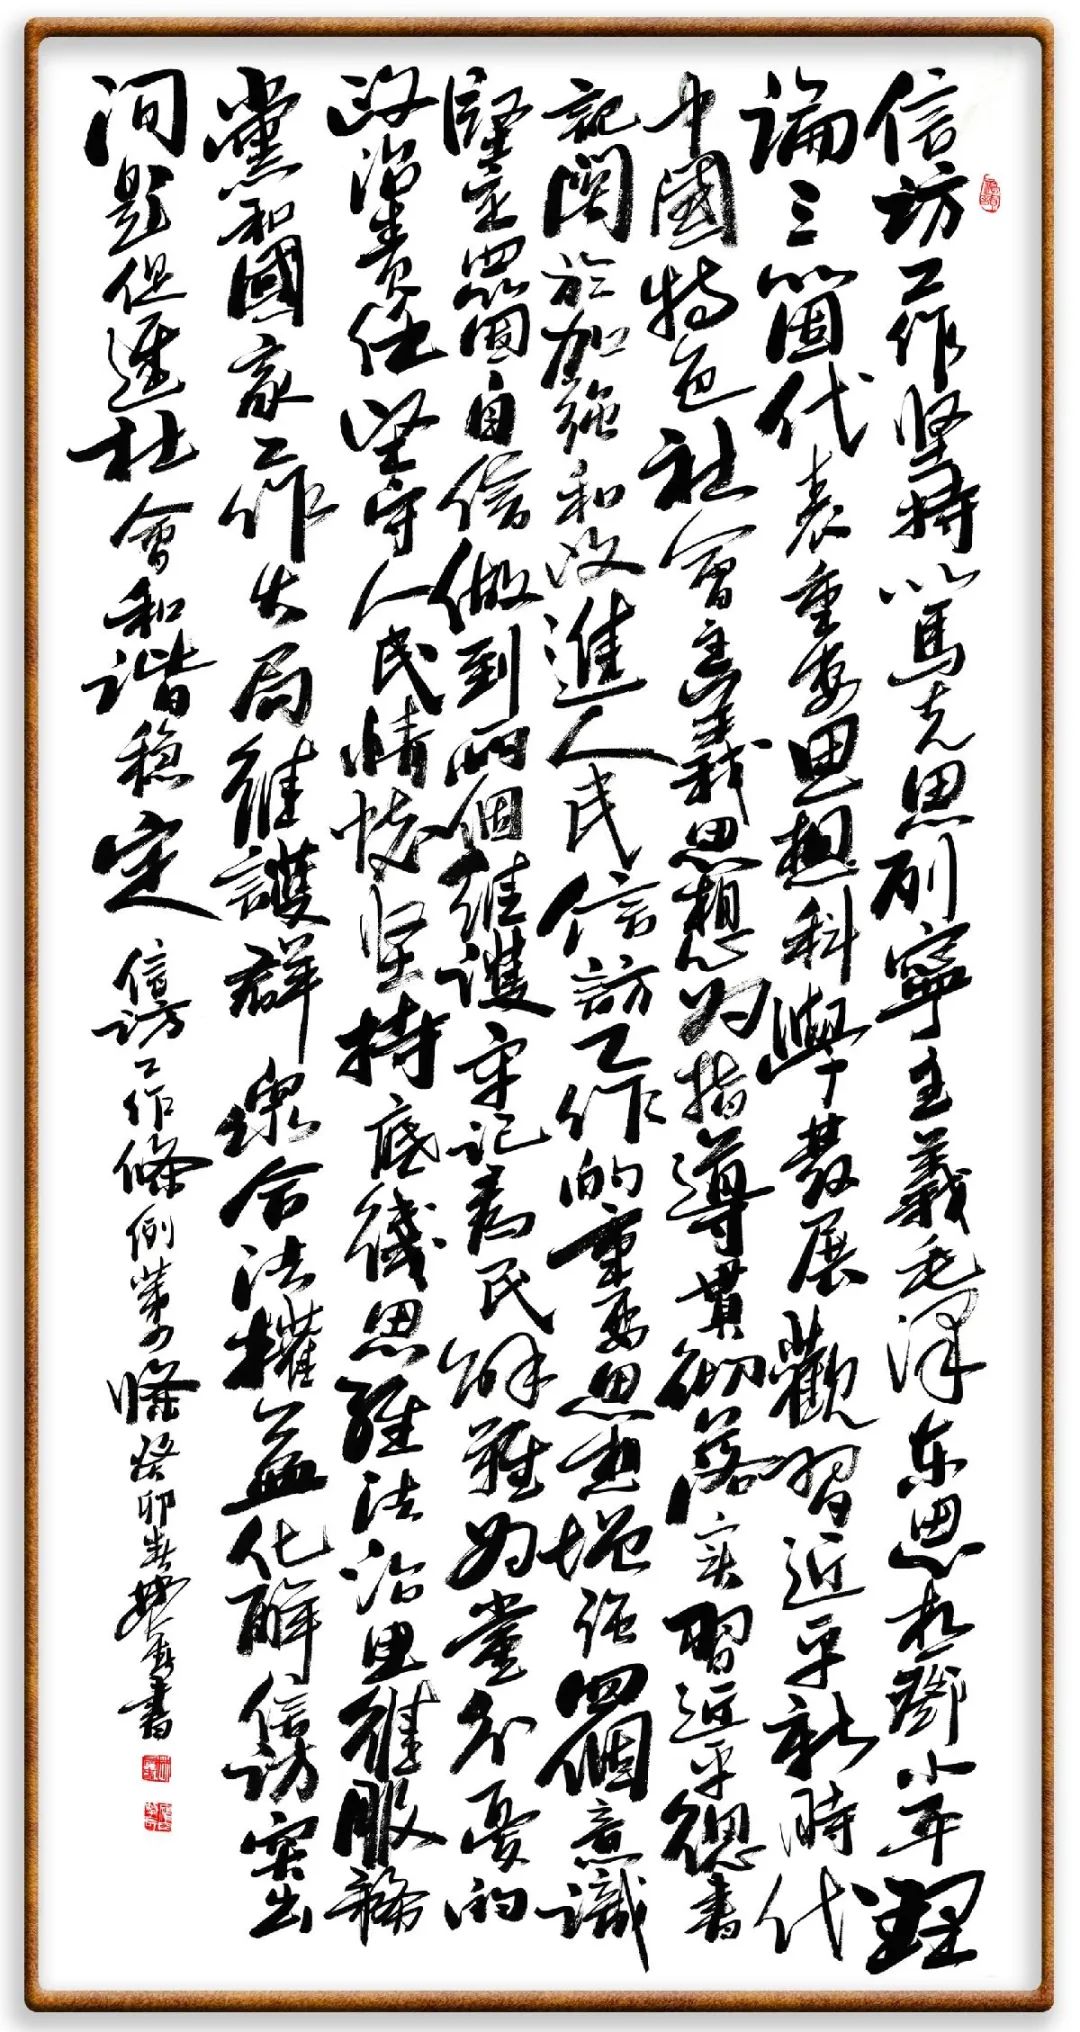 信访工作坚持以馬克思列寧主義毛泽东思想鄧小平理
論三箇代表重要思想科學發展觀習近平新時代
中國特色社會主義思想为指導貫彻落实習近平總書
記関於加強和改進人民信訪工作的重要思想增强四個意識
堅定四箇自信做到两個維護牢记為民解難为黨分憂的
政治責任坚守人民情怀坚持底綫思維法治思維服務
黨和國家工作大局維護群衆合法權益化解信访突出
问题促進社會和谐稳定
信访工作條例第條癸卯春書